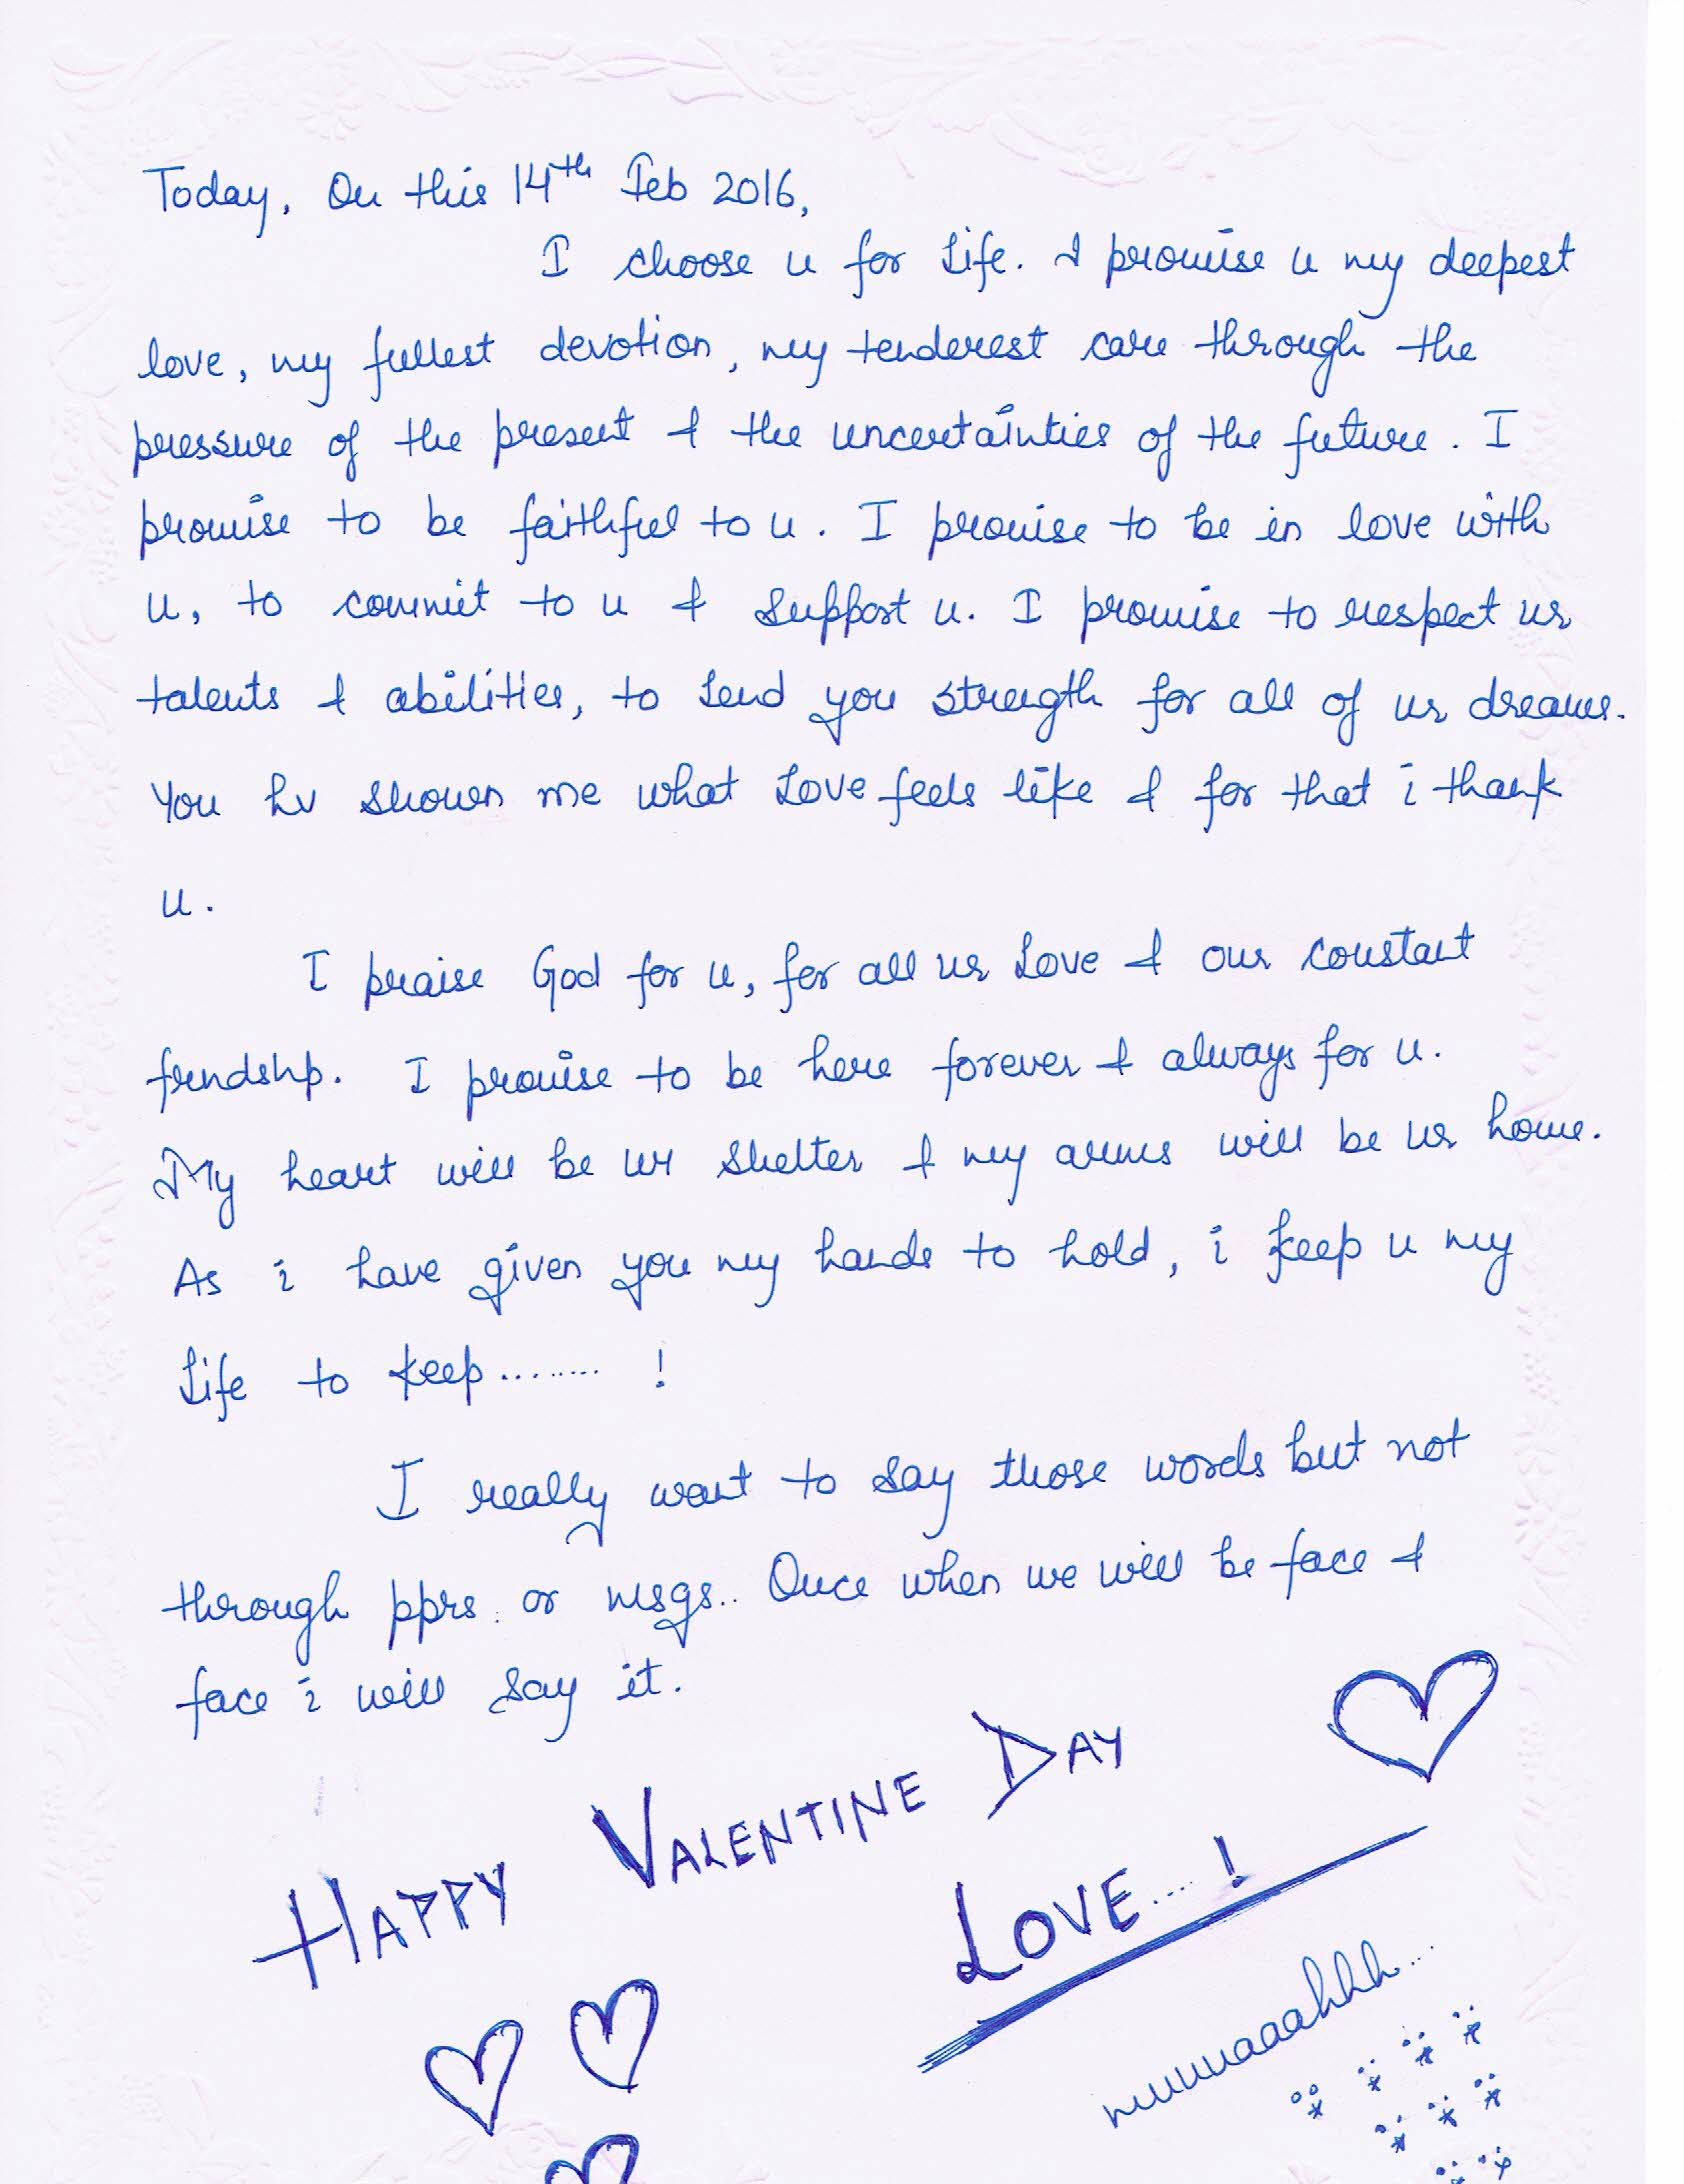 Today, On this 14th Feb 2016,
I choose u for life. I promise u my deepest
love, my fullest devotion, my tenderest care through the
pressure of the present & the uncertainties of the future. I
promise to be faithful to u. I promise to be in love with
u, to commit to u & support u. I promise to respect ur
talents & abilities, to lend you strength for all of ur dreams.
You hv shown me what Love feels like & for that i thank
u.
I praise God for u, for all ur Love & our constant
frendship. I promise to be here forever & always for u.
My heart will be ur shelter & my arms will be ur home.
As i have given you my hands to hold, i keep u my
life to keep........ !
I really want to say those words but not
through pprs. or msgs.. Once when we will be face &
face i will say it.
HAPPY VALENTINE DAY
LOVE....!
muuuaaahhh...